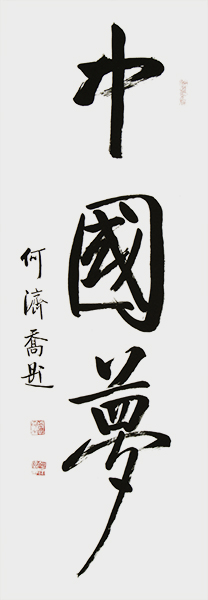 中國夢
何濟喬題